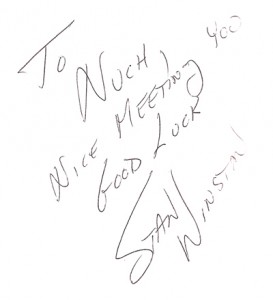 To Nuch,
Nice Meeting You
Good Luck
Stan Winston